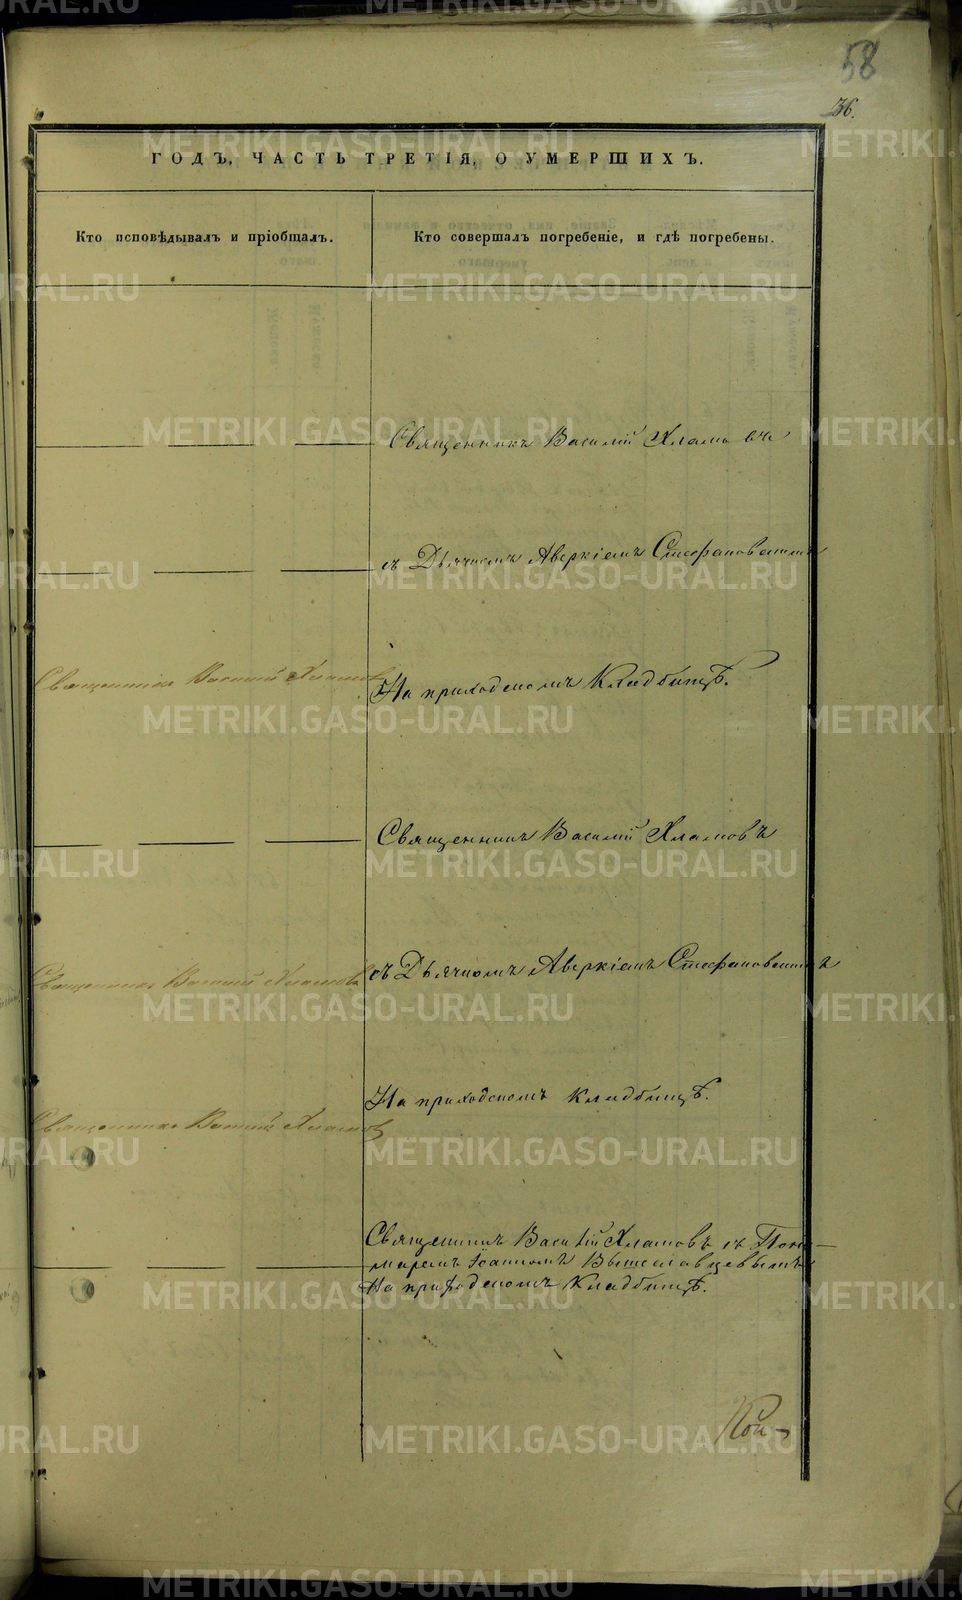 58
36.
ГОДЪ, ЧАСТЬ ТРЕТІЯ, О УМЕРШИХЪ.
Кто исповѣдывалъ и пріобщалъ.
Кто совершалъ погребеніе, и гдѣ погребены.
Священникъ Василій Хламовъ
съ Дьячкомъ Аверкіемъ Стефановскимъ
Священникъ Василій Хламовъ
На приходскомъ Кладбищѣ.
Священникъ Василій Хламовъ
Священникъ Василій Хламовъ
съ Дьячкомъ Аверкіемъ Стефановскимъ
На приходскомъ кладбищѣ.
Священникъ Василій Хламовъ
Священникъ Василій Хламовъ съ Поно-
маремъ Іоанномъ
На приходскомъ Кладбищѣ.
METRIKI.GASO-URAL.RU